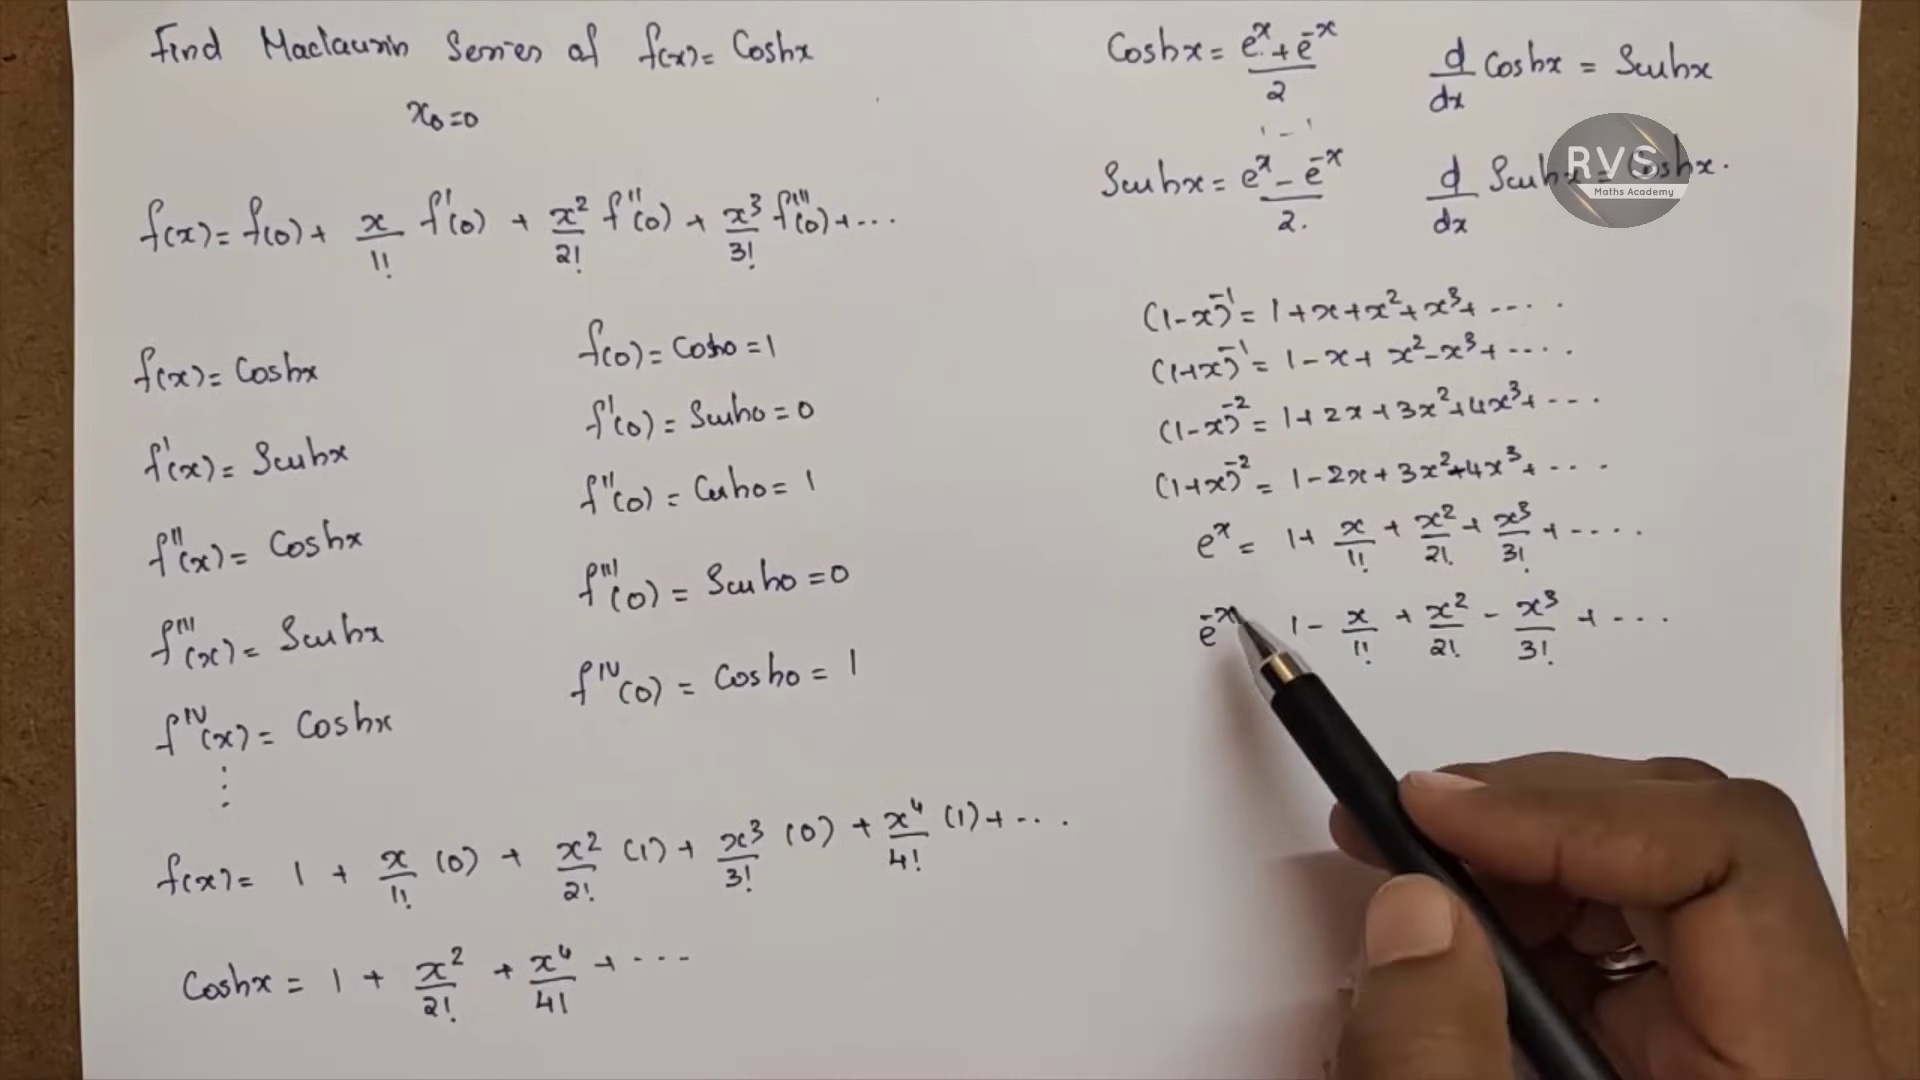 Find Maclaurin Series of f(x) = Coshx
x₀=0
f(x) = f(0) + x/1! f'(0) + x²/2! f''(0) + x³/3! f'''(0) + ...
f(x) = Coshx
f'(x) = Sinhx
f''(x) = Coshx
f'''(x) = Sinhx
f^IV(x) = Coshx
⋮
f(0) = Cosh0 = 1
f'(0) = Sinh0 = 0
f''(0) = Cosh0 = 1
f'''(0) = Sinh0 = 0
f^IV(0) = Cosh0 = 1
f(x) = 1 + x/1! (0) + x²/2! (1) + x³/3! (0) + x⁴/4! (1) + ...
Coshx = 1 + x²/2! + x⁴/4! + ...
Coshx = (e^x + e^-x)/2
d/dx Coshx = Sinhx
Sinhx = (e^x - e^-x)/2.
d/dx Sinhx = Coshx.
RVS
Maths Academy
(1-x)^-1 = 1+x+x²+x³+ ....
(1+x)^-1 = 1-x+x²-x³+ ....
(1-x)^-2 = 1+2x+3x²+4x³+ ...
(1+x)^-2 = 1-2x+3x²-4x³+ ...
e^x = 1+ x/1! + x²/2! + x³/3! + ....
e^-x 1 - x/1! + x²/2! - x³/3! + ...